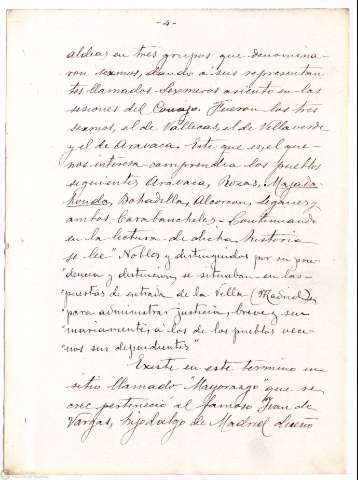 -4-
aldeas en tres grupos que denomina-
ron sexmos, dando á sus representan
tes llamados Sexmeros asiento en las
sesiones del Concejo. Fueron los tres
sexmos, el de Vallecas, el de Villaverde
y el de Aravaca. Este que es el que
nos interesa comprendia los pueblos
siguientes Aravaca, Rozas, Majada-
honda, Bobadilla, Alcorcon, Leganes y
ambos Carabancheles - Continuando
en la lectura de dicha historia
se lee "Nobles y distinguidos por su pru-
dencia y distincion, se situaban en las
"puertas de entrada de la Villa (Madrid)
"para administrar justicia, breve y su-
"mariamente, á los de los pueblos veci-
"nos sus dependientes"
Existe en este termino un
sitio llamado "Mayorazgo" que se
cree perteneció al famoso Ivan de
Vargas, hijodalgo de Madrid dueño